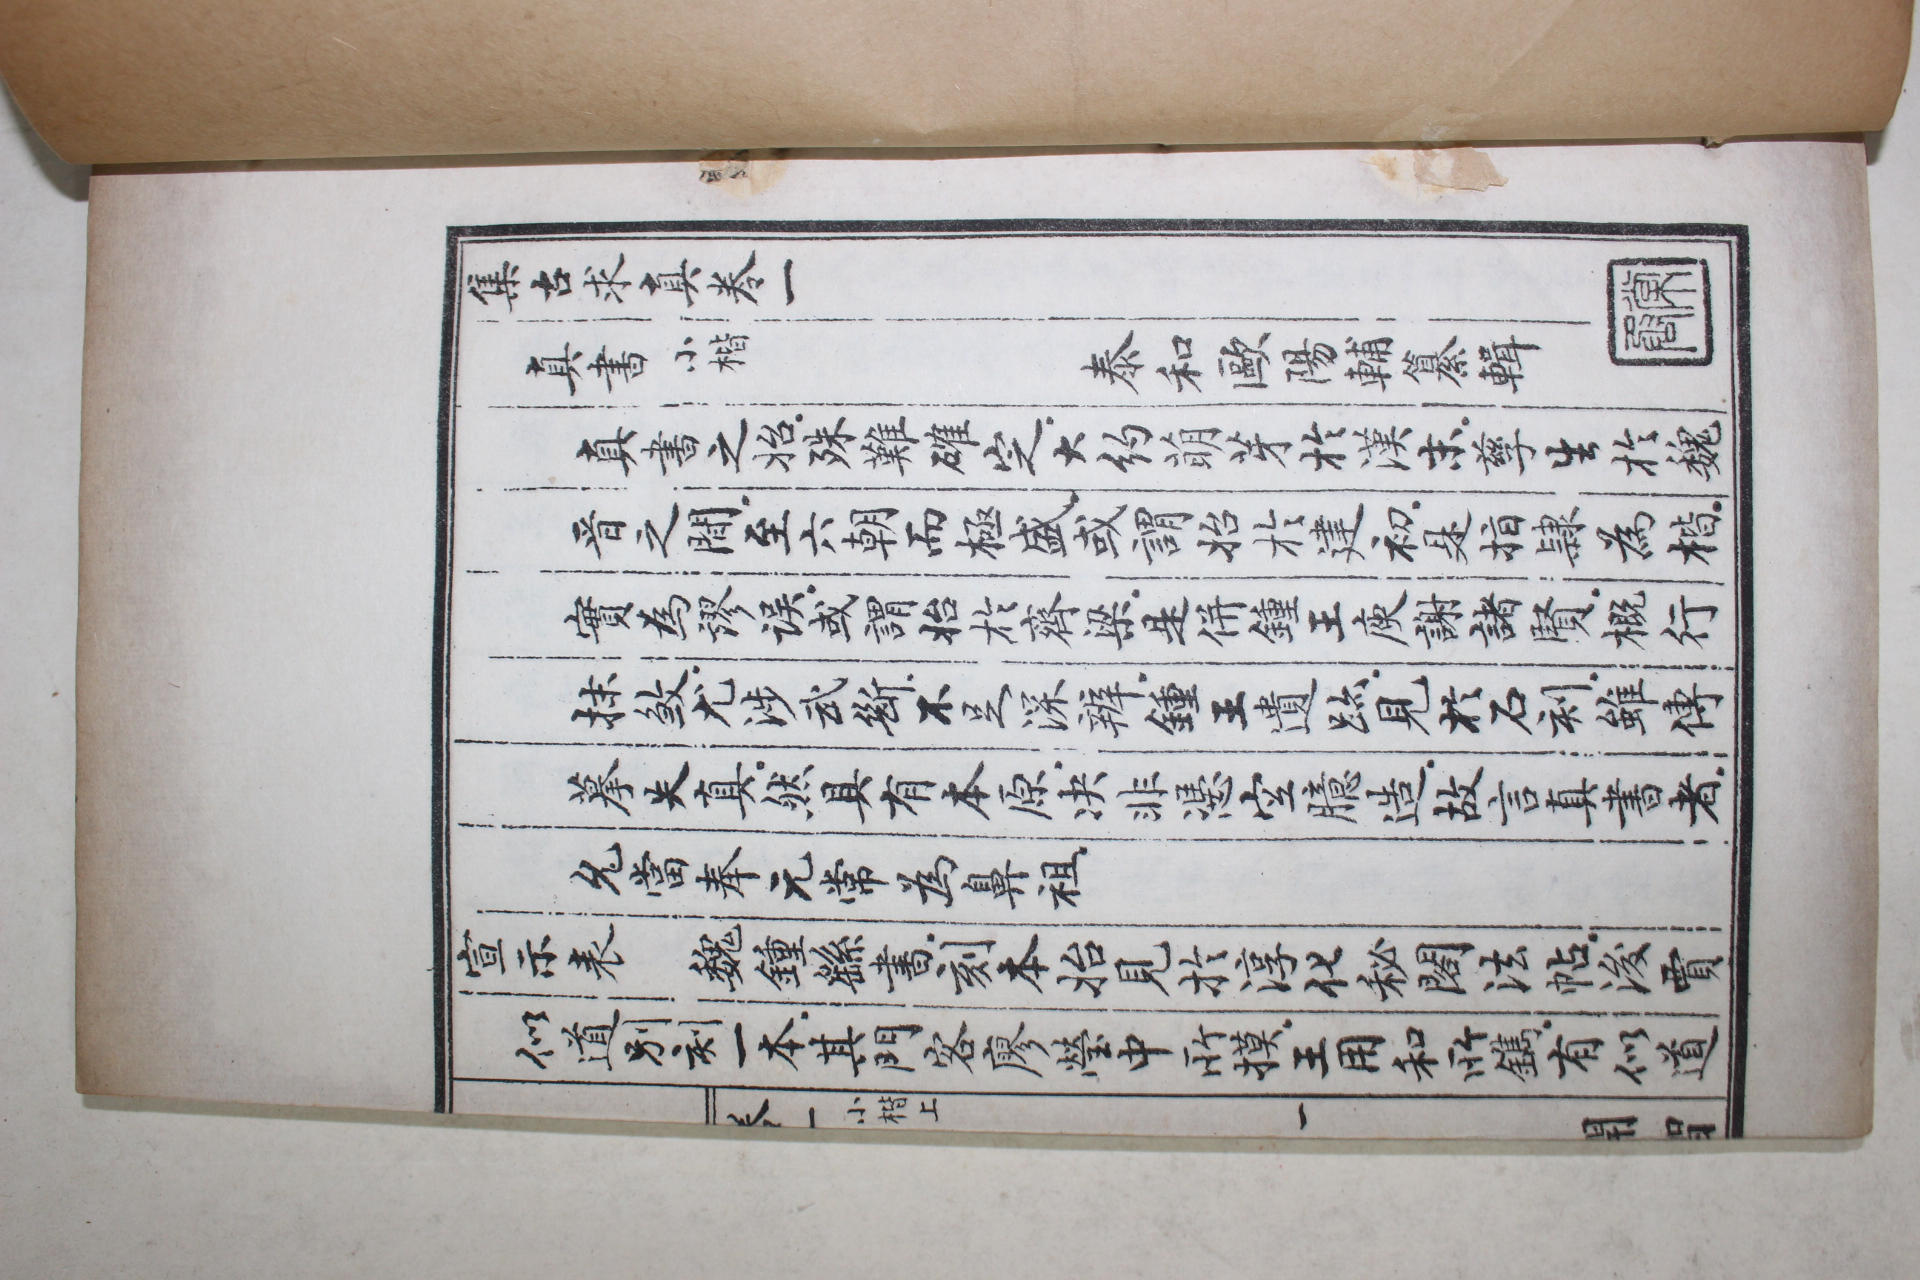 集古求真卷一
真書 小楷 泰和歐陽輔篹輯
真書之始。殊難確定。大約萌芽於漢末。孳生於魏
晉之間。至六朝而極盛。或謂始於建初。是指隸為楷。
實為謬誤。或謂始於齊梁。是併鍾王庾謝諸賢。概行
抹煞。尤涉武斷。不足深辨。鍾王遺跡。見於石刻。雖傳
摹失真。然具有本原。決非憑空臆造。故言真書者。
允當奉元常為鼻祖。
宣示表 魏鍾繇書。刻本始見於淳化秘閣法帖。後賈
似道別刻一本。其門客廖瑩中所摸。王用和所鐫。有似道
卷一 小楷上 一